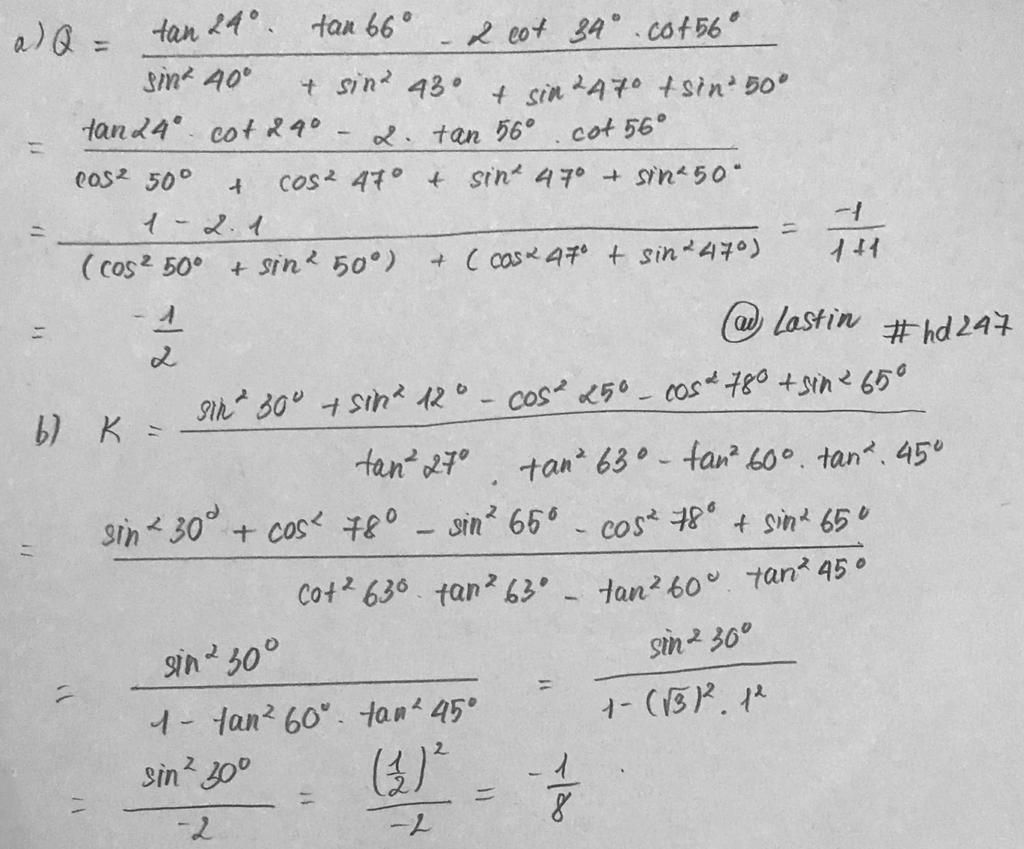 a) Q = (tan 24° . tan 66° - 2 cot 34° . cot 56°) / (sin² 40° + sin² 43° + sin² 47° + sin² 50°)
= (tan 24° . cot 24° - 2 . tan 56° . cot 56°) / (cos² 50° + cos² 47° + sin² 47° + sin² 50°)
= (1 - 2.1) / ((cos² 50° + sin² 50°) + (cos² 47° + sin² 47°)) = -1 / (1+1)
= -1/2
@ Lastin #hd247
b) K = (sin² 30° + sin² 12° - cos² 25° - cos² 78° + sin² 65°) / (tan² 27° . tan² 63° - tan² 60° . tan² . 45°)
= (sin² 30° + cos² 78° - sin² 65° - cos² 78° + sin² 65°) / (cot² 63° . tan² 63° - tan² 60° . tan² 45°)
= sin² 30° / (1 - tan² 60° . tan² 45°) = sin² 30° / (1 - (√3)² . 1²)
= sin² 30° / -2 = (1/2)² / -2 = -1/8